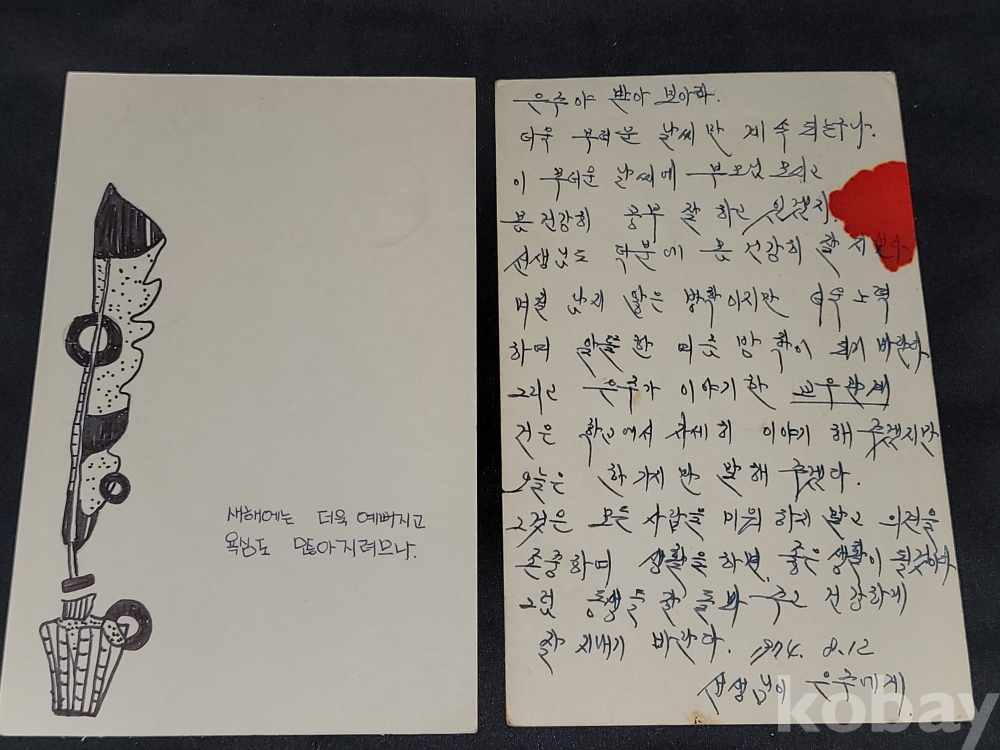 새해에는 더욱 예뻐지고
욕심도 많아지려므나.
은주야 받아 보아라.
더욱 무더운 날씨만 계속 되는구나.
이 무더운 날씨에 부모님 모시고
몸 건강히 공부 잘 하고 있겠지.
선생님도 덕분에 몸 건강히 잘 지낸다
며칠 남지 않은 방학이지만 더욱 노력
하며 알뜰한 여름 방학이 되기 바란다
그리고 은주가 이야기한 교우관계
건은 학교에서 자세히 이야기 해 주겠지만
오늘은 한 가지만 말해 주겠다.
그것은 모든 사람을 미워 하지 말고 의견을
존중하며 생활을 하면 좋은 생활이 될것이다
그럼 동생들 잘 돌봐 주고 건강하게
잘 지내기 바란다. 1974. 8.12
선생님이 은주에게.
kobay